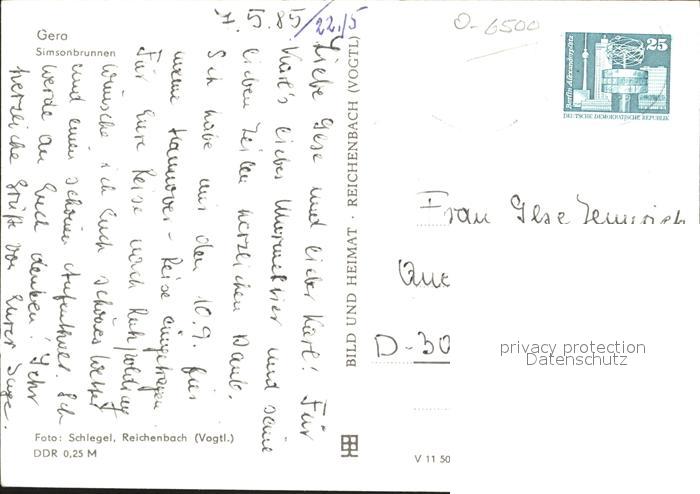 Gera
Simsonbrunnen
7.5.85
22./5
Liebe Gese und lieber Karl! Für
Karl's liebes Murmeltier und seine
lieben Zeilen herzlichen Dank.
Ich habe mir den 10.9. für
meine Hannover-Reise eingetragen.
Für Eure Reise nach Ruhpolding
wünsche ich Euch schönes Wetter
und einen schönen Aufenthalt. Ich
werde an Euch denken! Sehr
herzliche Grüße von Eurer
Foto: Schlegel, Reichenbach (Vogtl.)
DDR 0,25 M
BILD UND HEIMAT · REICHENBACH (VOGTL)
V 11 50
O-6500
Berlin, Alexanderplatz
25
DEUTSCHE DEMOKRATISCHE REPUBLIK
Frau Gese
Que
D-30
privacy protection
Datenschutz